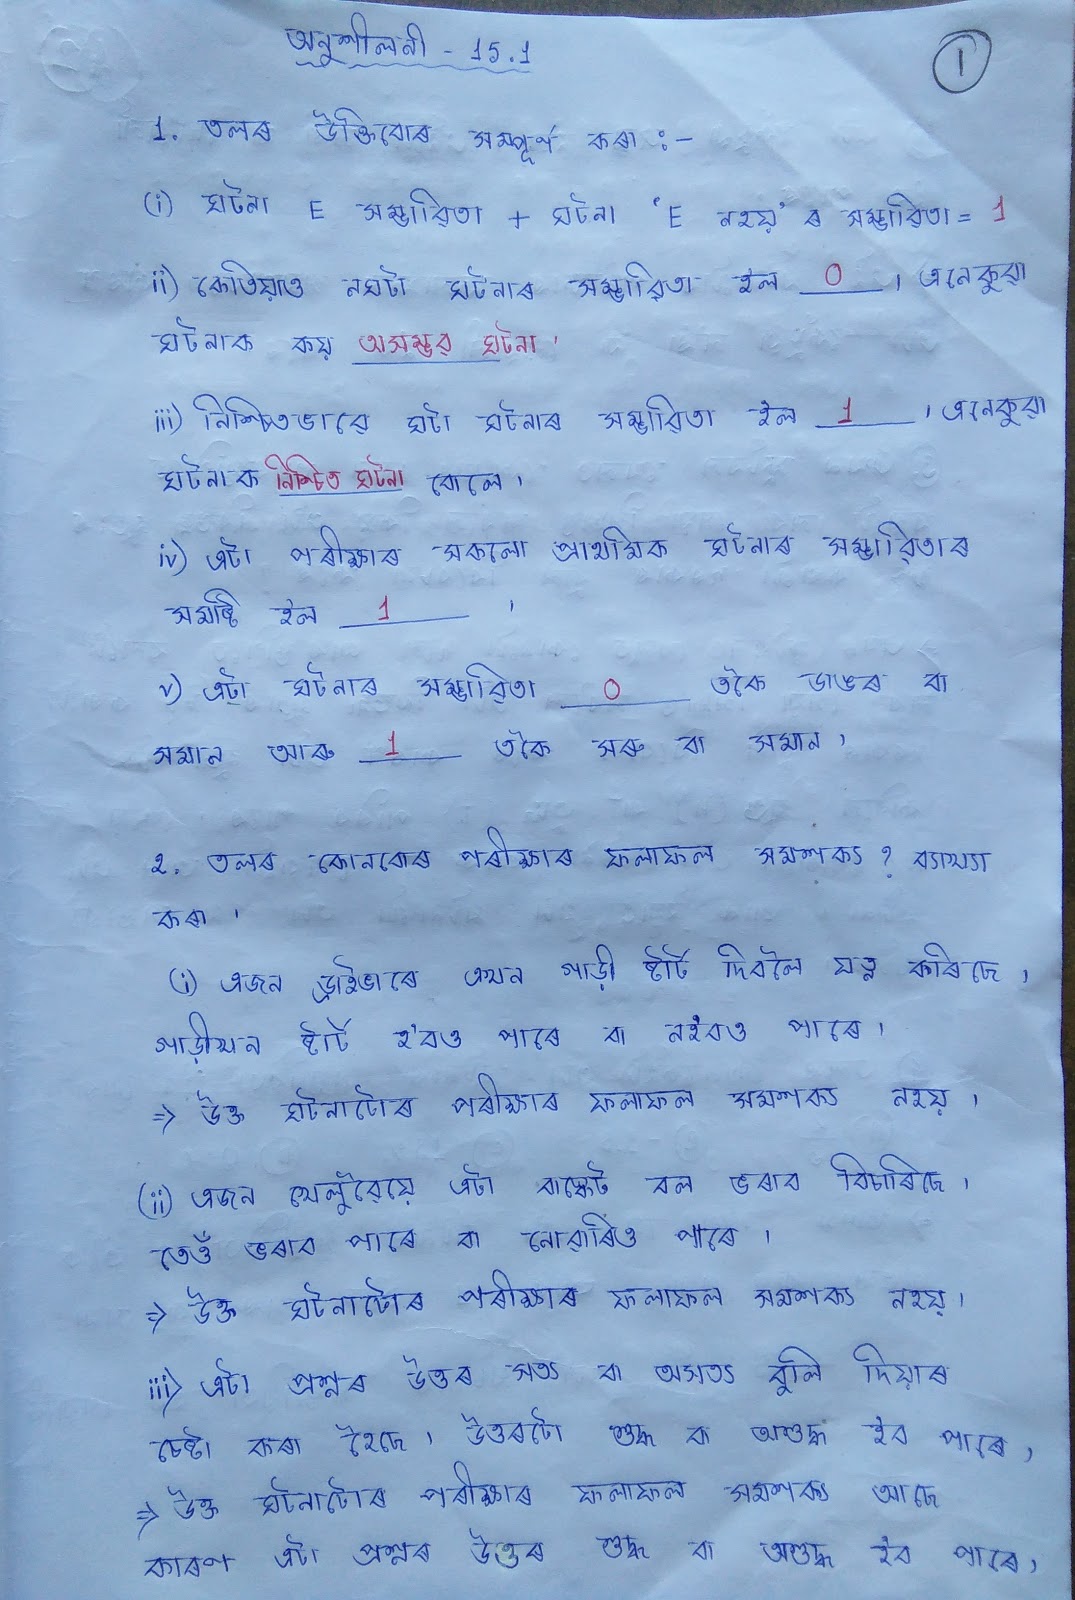 অনুশীলনী - 15.1
1
1. তলৰ উক্তিবোৰ সম্পূৰ্ণ কৰা :-
(i) ঘটনা E সম্ভাৱিতা + ঘটনা 'E নহয়' ৰ সম্ভাৱিতা = 1
ii) কেতিয়াও নঘটা ঘটনাৰ সম্ভাৱিতা হ'ল 0 । এনেকুৱা
ঘটনাক কয় অসম্ভৱ ঘটনা ।
iii) নিশ্চিতভাৱে ঘটা ঘটনাৰ সম্ভাৱিতা হ'ল 1 । এনেকুৱা
ঘটনাক নিশ্চিত ঘটনা বোলে ।
iv) এটা পৰীক্ষাৰ সকলো প্ৰাথমিক ঘটনাৰ সম্ভাৱিতাৰ
সমষ্টি হ'ল 1 ।
v) এটা ঘটনাৰ সম্ভাৱিতা 0 তকৈ ডাঙৰ বা
সমান আৰু 1 তকৈ সৰু বা সমান ।
2. তলৰ কোনবোৰ পৰীক্ষাৰ ফলাফল সমশক্য ? ব্যাখ্যা
কৰা ।
(i) এজন ড্ৰাইভাৰে এখন গাড়ী ষ্টাৰ্ট দিবলৈ যত্ন কৰিছে ,
গাড়ীখন ষ্টাৰ্ট হ'বও পাৰে বা নহ'বও পাৰে ।
⇒ উক্ত ঘটনাটোৰ পৰীক্ষাৰ ফলাফল সমশক্য নহয় ।
(ii) এজন খেলুৱৈয়ে এটা বাস্কেট বল ভৰাব বিচাৰিছে ,
তেওঁ ভৰাব পাৰে বা নোৱাৰিও পাৰে ।
⇒ উক্ত ঘটনাটোৰ পৰীক্ষাৰ ফলাফল সমশক্য নহয় ।
iii) এটা প্ৰশ্নৰ উত্তৰ সত্য বা অসত্য বুলি দিয়াৰ
চেষ্টা কৰা হৈছে । উত্তৰটো শুদ্ধ বা অশুদ্ধ হ'ব পাৰে ,
⇒ উক্ত ঘটনাটোৰ পৰীক্ষাৰ ফলাফল সমশক্য আছে
কাৰণ এটা প্ৰশ্নৰ উত্তৰ শুদ্ধ বা অশুদ্ধ হ'ব পাৰে ,